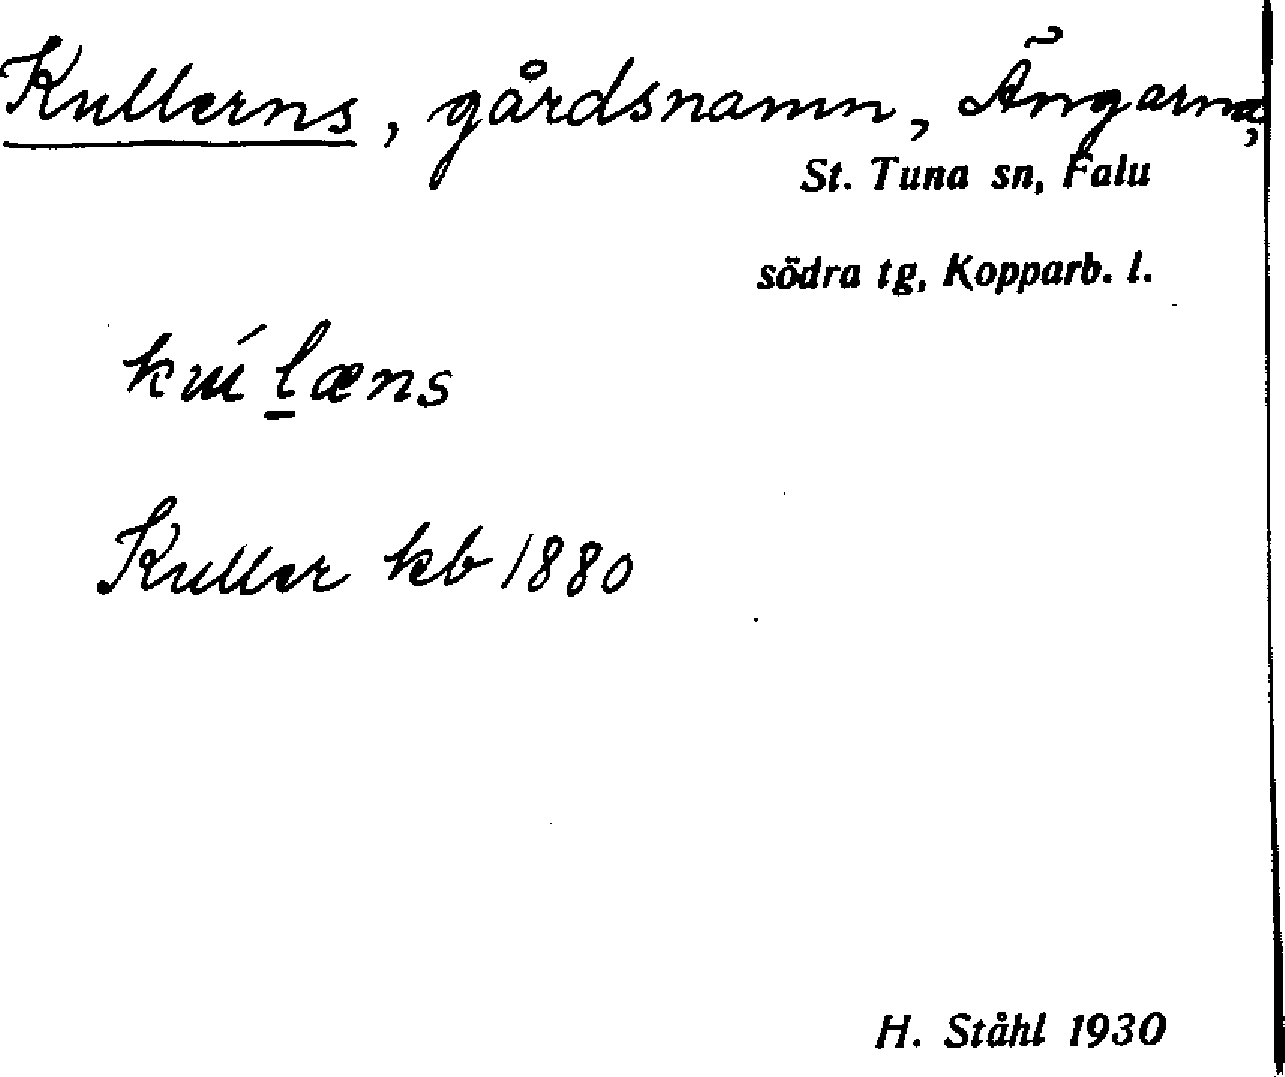 Kullerns, gårdsnamn, Ängarna,
St. Tuna sn, Falu
södra tg, Kopparb. l.
Kuller kb 1880
H. Ståhl 1930